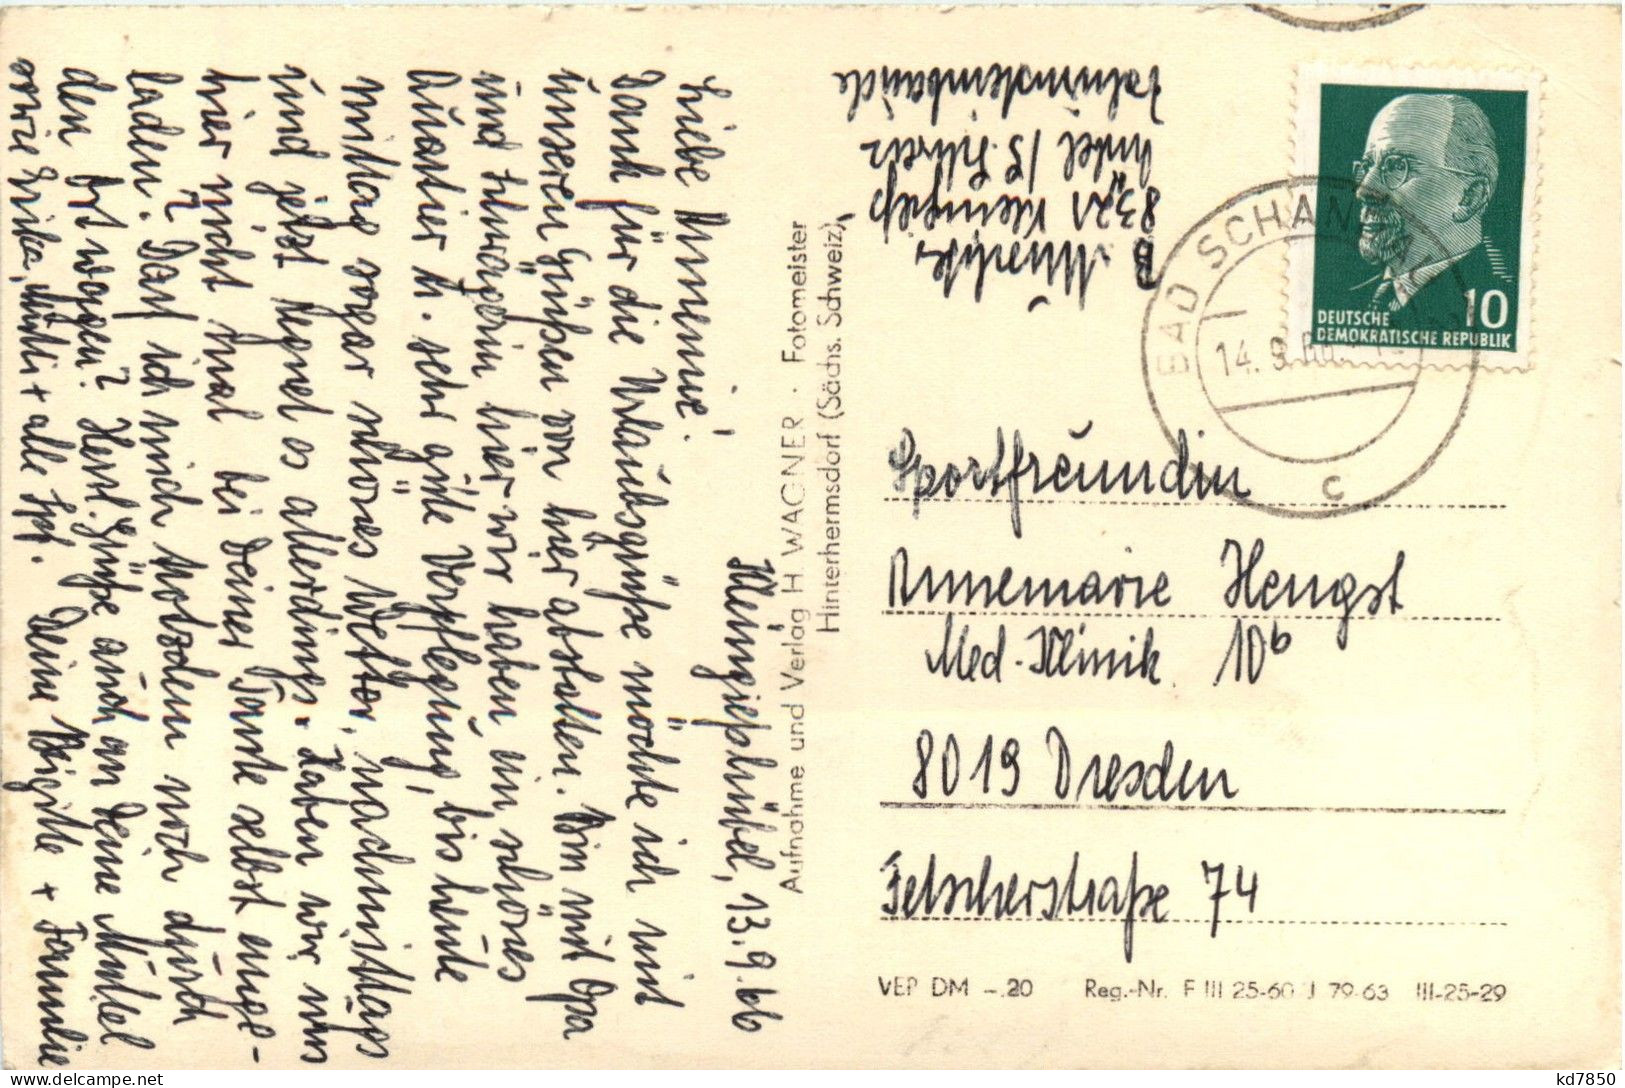 Kleingießhübel, 13.9.66
Liebe Annemie!
Dank für die Urlaubsgrüße möchte ich mit
unseren Grüßen von hier abstatten. Bin mit Opa
und Schwägerin hier wir haben ein schönes
Quartier u. sehr gute Verpflegung, bis heute
mittag sogar schönes Wetter, nachmittags
und jetzt regnet es allerdings. Haben wir uns
hier nicht mal bei Deiner Tante selbst einge-
laden? Darf ich mich trotzdem noch durch
den Ort wagen? Herzl. Grüße auch an Deine Muttel
sowie Erika, Mutti + alle Spf. Deine Brigitte + Familie
B. Mürbe
8321 Kleingieß-
hübel / S. Schweiz
Zschirnsteinbaude
Aufnahme und Verlag H. WAGNER · Fotomeister
Hinterhermsdorf (Sächs. Schweiz)
BAD SCHANDAU
14. 9.
c
10
DEUTSCHE
DEMOKRATISCHE REPUBLIK
Sportfreundin
Annemarie Hengst
Med.-Klinik 10b
8019 Dresden
Fetscherstraße 74
VEP DM -.20 Reg.-Nr. F III 25-60 J 79-63 III-25-29
kd7850